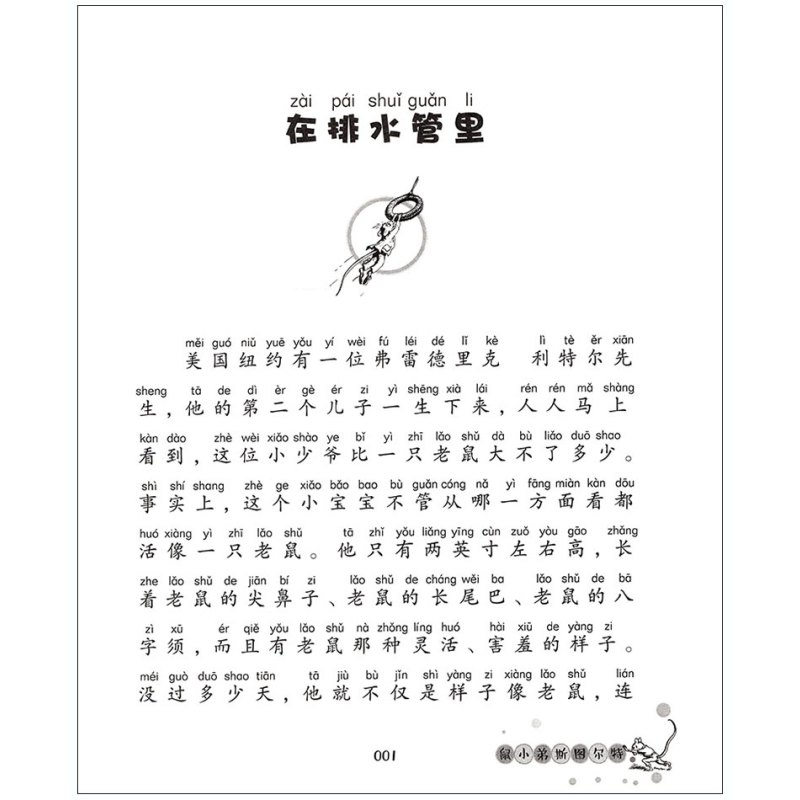 zài pái shuǐ guǎn li
在排水管里
měi guó niǔ yuē yǒu yí wèi fú léi dé lǐ kè lì tè ěr xiān
美国纽约有一位弗雷德里克 利特尔先
sheng tā de dì èr gè ér zi yì shēng xià lái rén rén mǎ shàng
生，他的第二个儿子一生下来，人人马上
kàn dào zhè wèi xiǎo shào ye bǐ yì zhī lǎo shǔ dà bù liǎo duō shao
看到，这位小少爷比一只老鼠大不了多少。
shì shí shang zhè ge xiǎo bǎo bao bù guǎn cóng nǎ yì fāng miàn kàn dōu
事实上，这个小宝宝不管从哪一方面看都
huó xiàng yì zhī lǎo shǔ tā zhǐ yǒu liǎng yīng cùn zuǒ yòu gāo zhǎng
活像一只老鼠。他只有两英寸左右高，长
zhe lǎo shǔ de jiān bí zi lǎo shǔ de cháng wěi ba lǎo shǔ de bā
着老鼠的尖鼻子、老鼠的长尾巴、老鼠的八
zì xū ér qiě yǒu lǎo shǔ nà zhǒng líng huó hài xiū de yàng zi
字须，而且有老鼠那种灵活、害羞的样子。
méi guò duō shao tiān tā jiù bù jǐn shì yàng zi xiàng lǎo shǔ lián
没过多少天，他就不仅是样子像老鼠，连
001
鼠小弟斯图尔特